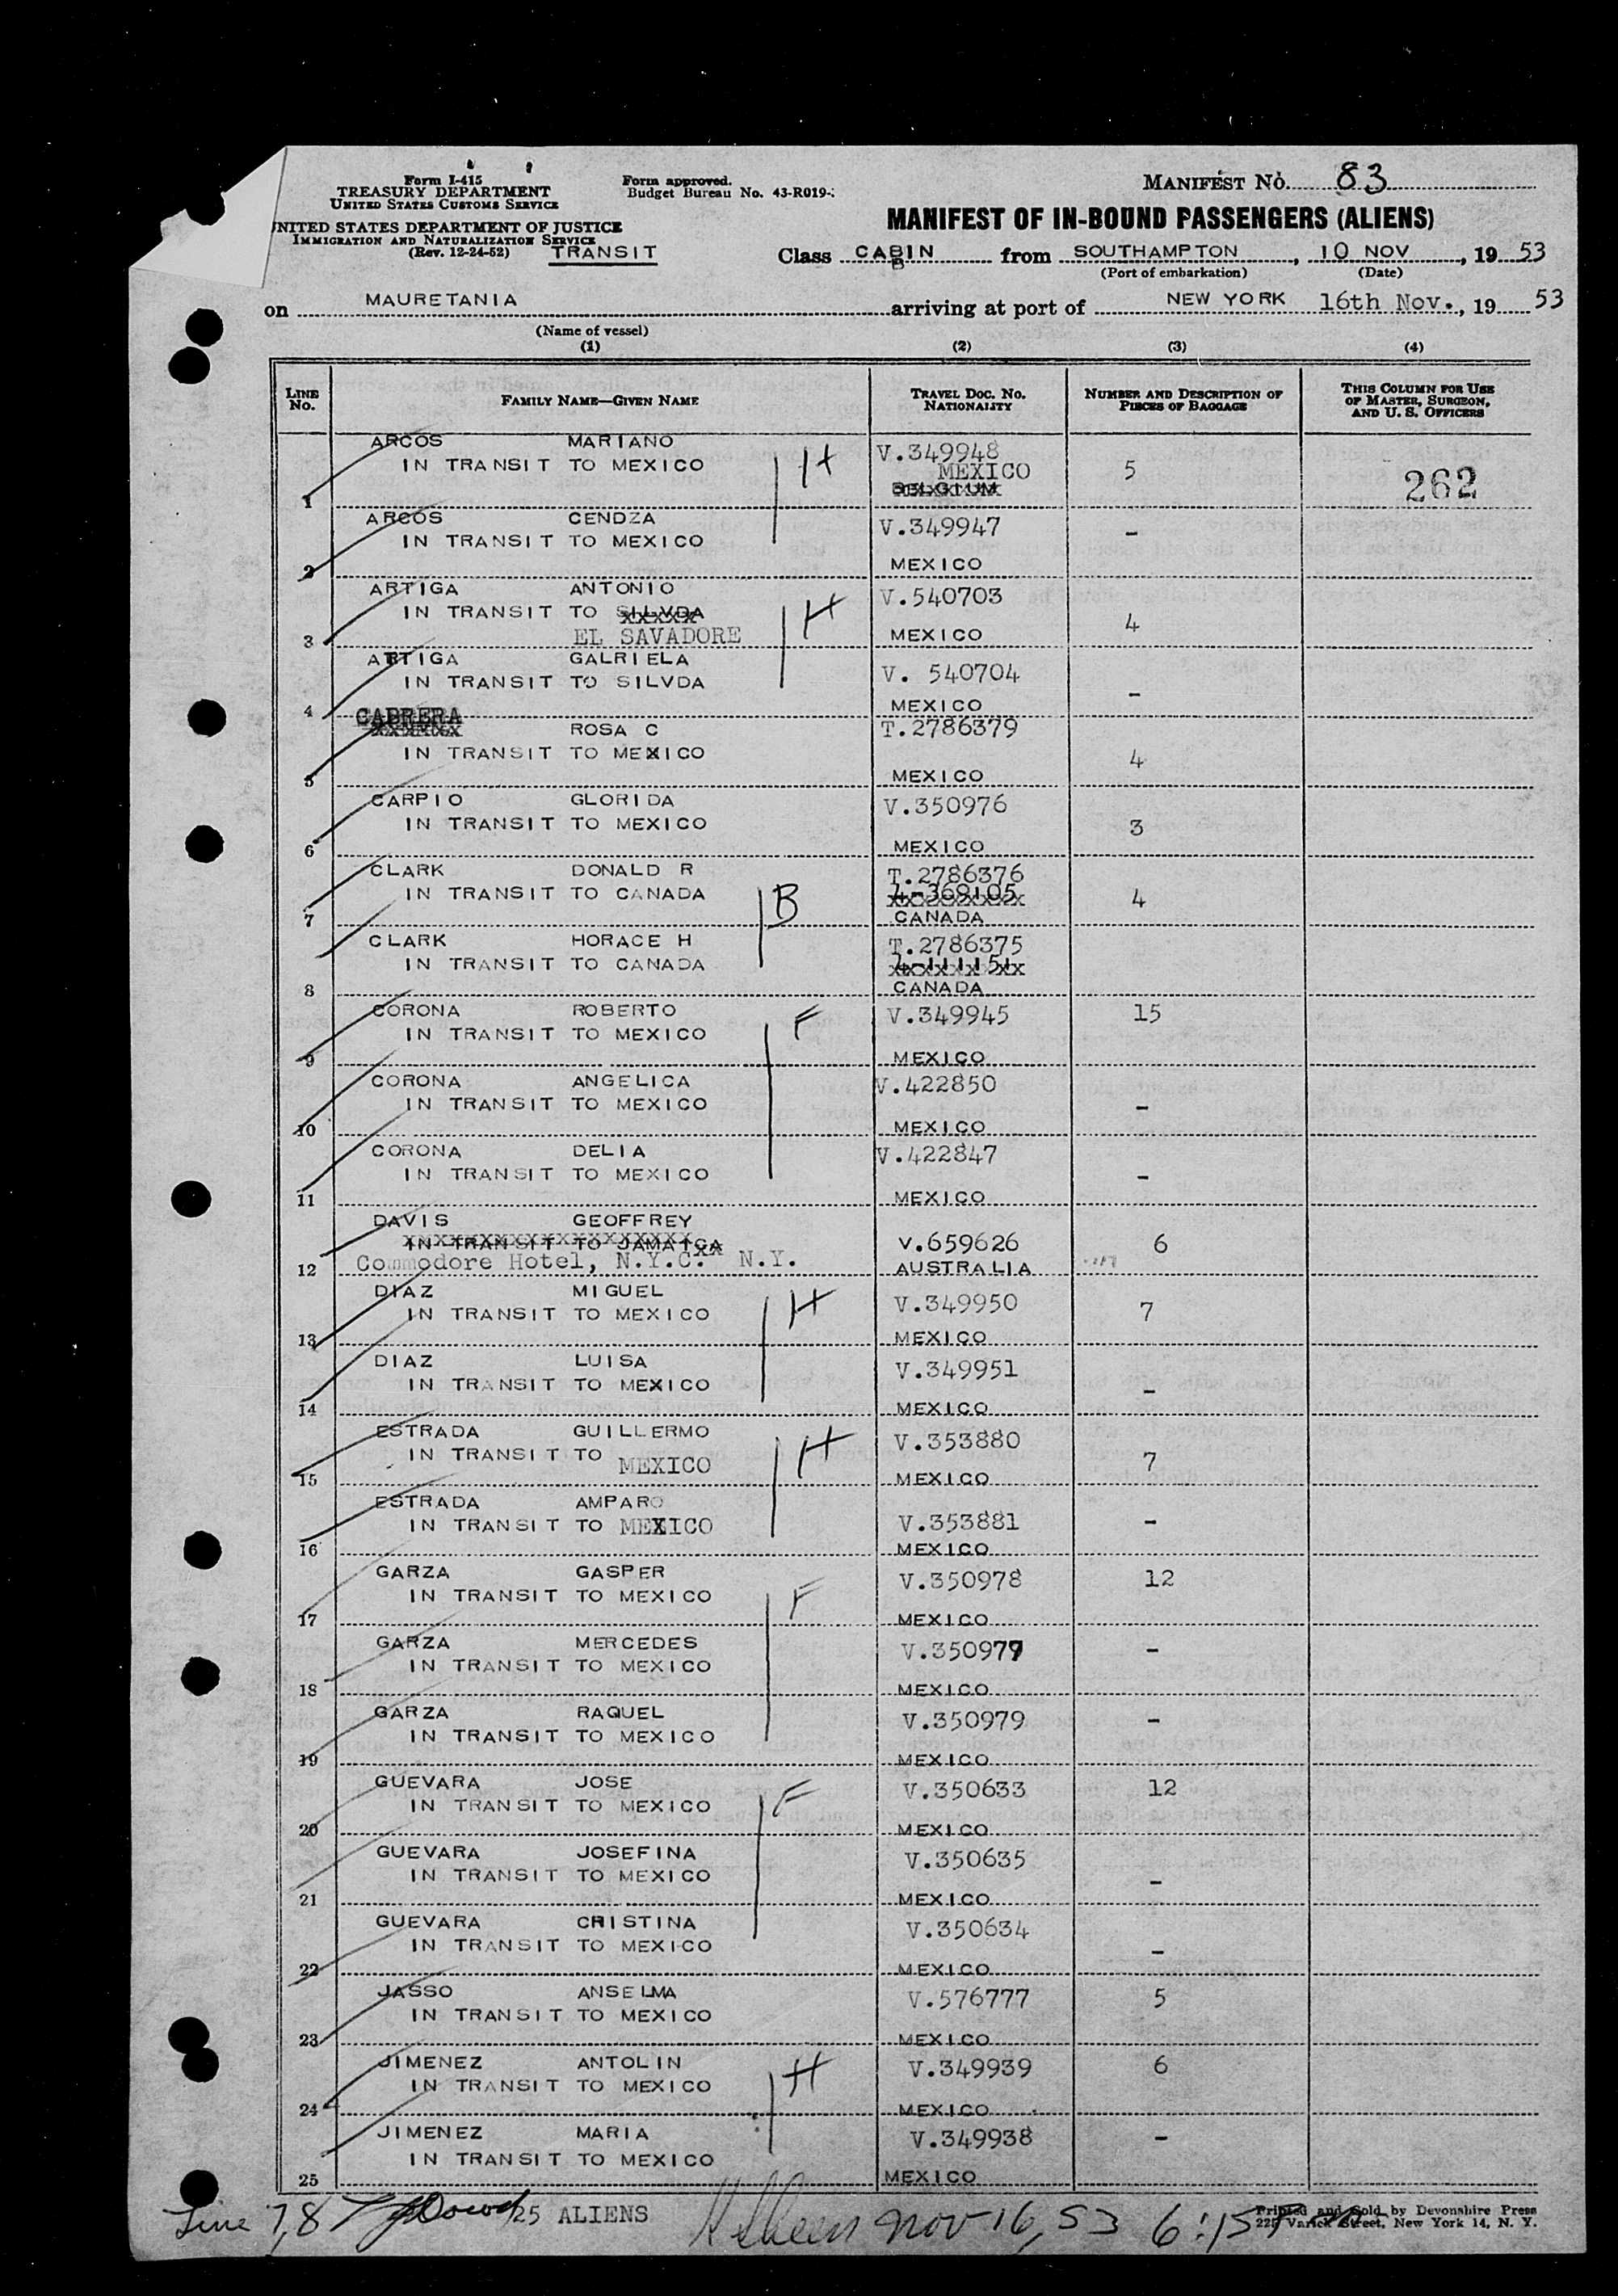 Form I-415
TREASURY DEPARTMENT
UNITED STATES CUSTOMS SERVICE
Form approved.
Budget Bureau No. 43-R019-
MANIFEST No. 83
NITED STATES DEPARTMENT OF JUSTICE
IMMIGRATION AND NATURALIZATION SERVICE
(Rev. 12-24-52) TRANSIT
MANIFEST OF IN-BOUND PASSENGERS (ALIENS)
Class CABIN from SOUTHAMPTON, 10 NOV, 19 53
(Port of embarkation) (Date)
on MAURETANIA arriving at port of NEW YORK 16th Nov., 19 53
(Name of vessel)
(1) (2) (3) (4)
LINE No. FAMILY NAME—GIVEN NAME TRAVEL DOC. NO. NATIONALITY NUMBER AND DESCRIPTION OF PIECES OF BAGGAGE THIS COLUMN FOR USE OF MASTER, SURGEON, AND U. S. OFFICERS
ARCOS MARIANO V.349948
IN TRANSIT TO MEXICO H MEXICO 5 262
1 BELGIUM
ARCOS CENDZA V.349947 -
IN TRANSIT TO MEXICO
2 MEXICO
ARTIGA ANTONIO V.540703
IN TRANSIT TO SILVDA H
3 EL SAVADORE MEXICO 4
ARTIGA GALRIELA V. 540704
IN TRANSIT TO SILVDA -
4 MEXICO
CABRERA ROSA C T.2786379
IN TRANSIT TO MEXICO 4
5 MEXICO
CARPIO GLORIDA V.350976
IN TRANSIT TO MEXICO 3
6 MEXICO
CLARK DONALD R T.2786376
IN TRANSIT TO CANADA B 4-369105 4
7 CANADA
CLARK HORACE H T.2786375
IN TRANSIT TO CANADA 4-111151
8 CANADA
CORONA ROBERTO F V.349945 15
IN TRANSIT TO MEXICO
9 MEXICO
CORONA ANGELICA V.422850
IN TRANSIT TO MEXICO -
10 MEXICO
CORONA DELIA V.422847
IN TRANSIT TO MEXICO -
11 MEXICO
DAVIS GEOFFREY
IN TRANSIT TO JAMAICA V.659626 6
12 Commodore Hotel, N.Y.C. N.Y. AUSTRALIA
DIAZ MIGUEL H V.349950 7
IN TRANSIT TO MEXICO
13 MEXICO
DIAZ LUISA V.349951
IN TRANSIT TO MEXICO -
14 MEXICO
ESTRADA GUILLERMO H V.353880
IN TRANSIT TO MEXICO 7
15 MEXICO
ESTRADA AMPARO
IN TRANSIT TO MEXICO V.353881 -
16 MEXICO
GARZA GASPER V.350978 12
IN TRANSIT TO MEXICO F
17 MEXICO
GARZA MERCEDES V.350977 -
IN TRANSIT TO MEXICO
18 MEXICO
GARZA RAQUEL V.350979 -
IN TRANSIT TO MEXICO
19 MEXICO
GUEVARA JOSE V.350633 12
IN TRANSIT TO MEXICO F
20 MEXICO
GUEVARA JOSEFINA V.350635
IN TRANSIT TO MEXICO -
21 MEXICO
GUEVARA CRISTINA V.350634
IN TRANSIT TO MEXICO -
22 MEXICO
JASSO ANSELMA V.576777 5
IN TRANSIT TO MEXICO
23 MEXICO
JIMENEZ ANTOLIN H V.349939 6
IN TRANSIT TO MEXICO
24 MEXICO
JIMENEZ MARIA V.349938 -
IN TRANSIT TO MEXICO
25 MEXICO
Line 7,8 25 ALIENS Nov 16, 53 6:15 P
Printed and Sold by Devonshire Press
225 Varick Street, New York 14, N. Y.